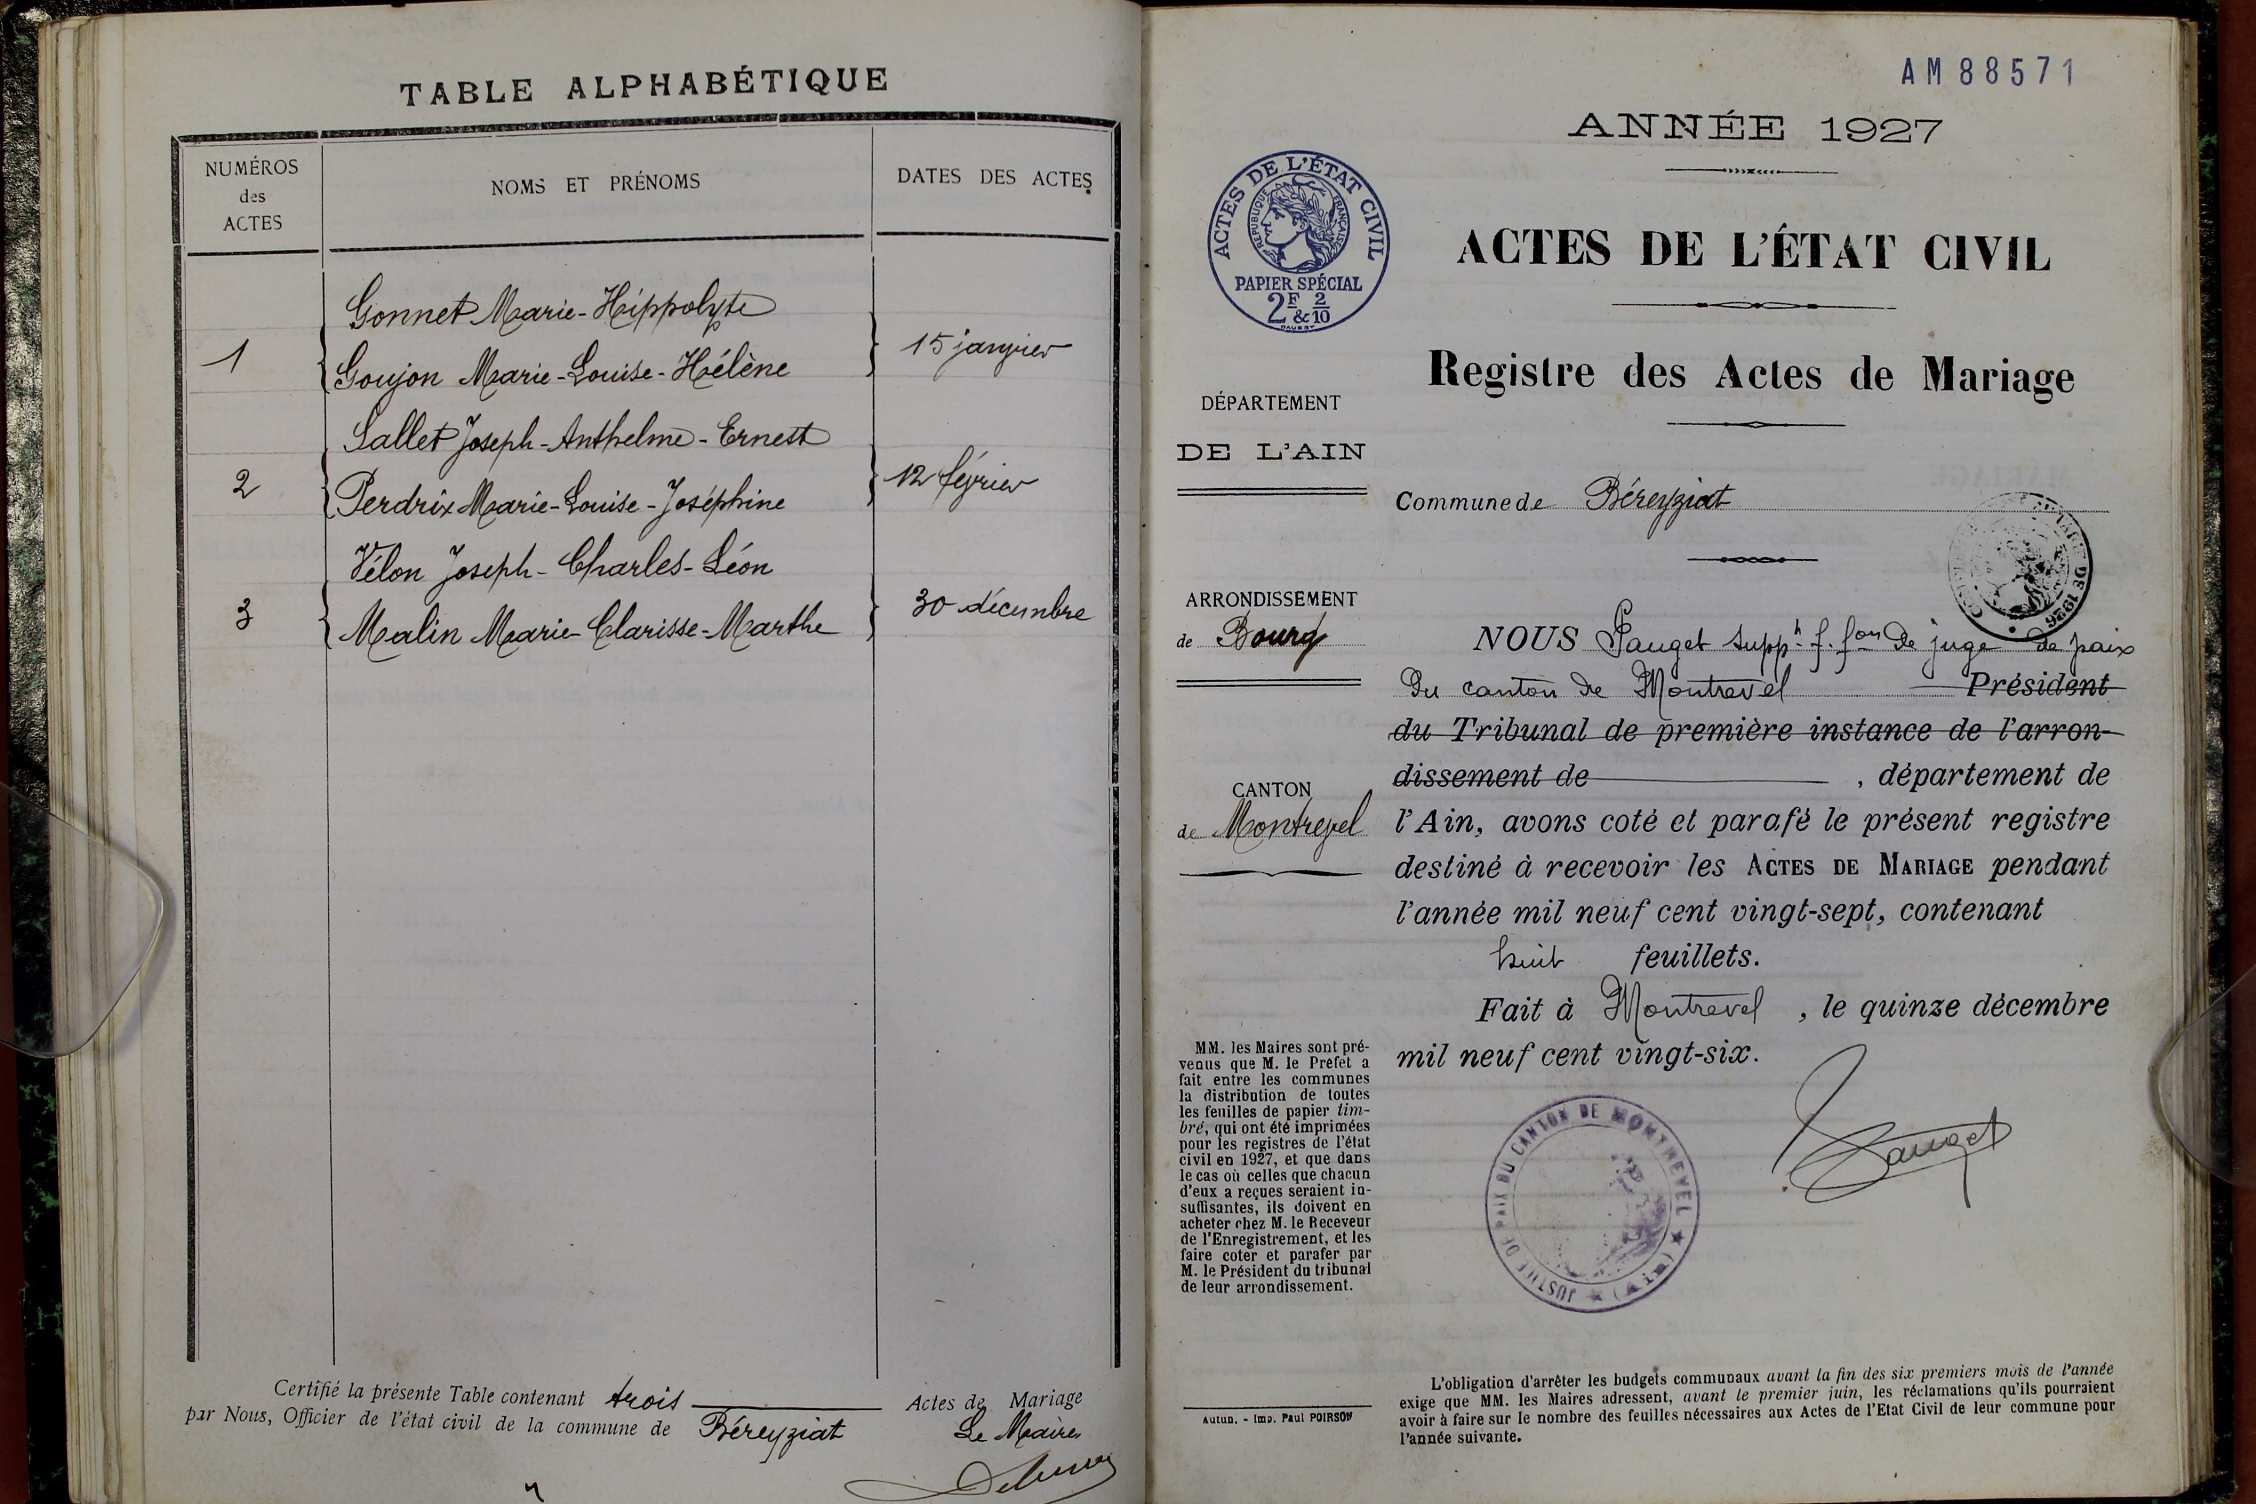 TABLE ALPHABÉTIQUE
NUMÉROS
des
ACTES
NOMS ET PRÉNOMS
DATES DES ACTES
Gonnet Marie-Hippolyte
1
Goujon Marie-Louise-Hélène
15 janvier
Sallet Joseph-Anthelme-Ernest
2
Perdrix Marie-Louise-Joséphine
12 février
Vélon Joseph-Charles-Léon
3
Malin Marie-Clarisse-Marthe
30 décembre
Certifié la présente Table contenant trois Actes de Mariage
par Nous, Officier de l'état civil de la commune de Béreyziat
Le Maire
AM 88571
ANNÉE 1927
ACTES DE L'ÉTAT CIVIL
RÉPUBLIQUE FRANÇAISE
PAPIER SPÉCIAL
2F & 2/10
ACTES DE L'ÉTAT CIVIL
Registre des Actes de Mariage
DÉPARTEMENT
DE L'AIN
Commune de Béreyziat
DE 1926
ARRONDISSEMENT
de Bourg
CANTON
de Montrevel
NOUS Pauget suppt f. fon de juge de paix
du canton de Montrevel Président
du Tribunal de première instance de l'arron-
dissement de , département de
l'Ain, avons coté et parafé le présent registre
destiné à recevoir les ACTES DE MARIAGE pendant
l'année mil neuf cent vingt-sept, contenant
huit feuillets.
Fait à Montrevel , le quinze décembre
mil neuf cent vingt-six.
Pauget
JUSTICE DE PAIX DU CANTON DE MONTREVEL (AIN)
MM. les Maires sont pré-
venus que M. le Préfet a
fait entre les communes
la distribution de toutes
les feuilles de papier tim-
bré, qui ont été imprimées
pour les registres de l'état
civil en 1927, et que dans
le cas où celles que chacun
d'eux a reçues seraient in-
suffisantes, ils doivent en
acheter chez M. le Receveur
de l'Enregistrement, et les
faire coter et parafer par
M. le Président du tribunal
de leur arrondissement.
Autun. - Imp. Paul POIRSON
L'obligation d'arrêter les budgets communaux avant la fin des six premiers mois de l'année
exige que MM. les Maires adressent, avant le premier juin, les réclamations qu'ils pourraient
avoir à faire sur le nombre des feuilles nécessaires aux Actes de l'Etat Civil de leur commune pour
l'année suivante.